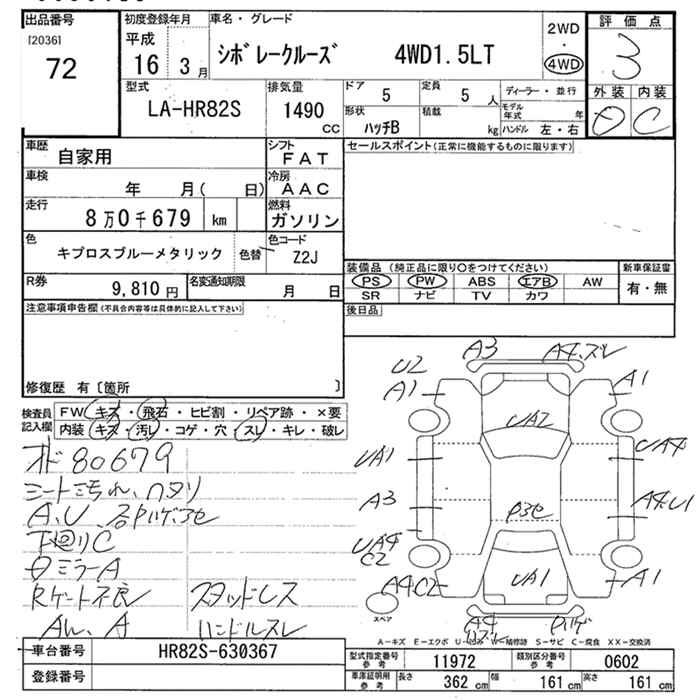 出品番号
[2036]
72
初度登録年月
平成
16 3 月
車名・グレード
シボレークルーズ 4WD1.5LT
2WD
・
4WD
評価点
3
外装 内装
C
型式
LA-HR82S
排気量
1490
CC
ドア
5
定員
5 人
形状
ハッチB
積載
kg
ディーラー・並行
モデル年式 年
ハンドル 左・右
車歴
自家用
シフト
FAT
車検
年 月( 日)
冷房
AAC
走行
8万0千679 km
燃料
ガソリン
色
キプロスブルーメタリック 色替
色コード
Z2J
R券
9,810 円
名変通知期限
月 日
セールスポイント(正常に機能するものに限ります)
装備品 (純正品に限り○をつけてください)
PS PW ABS エアB AW
SR ナビ TV カワ
新車保証書
有・無
後日品
注意事項申告欄(不具合内容等は具体的に記入して下さい)
修復歴 有〔箇所 〕
検査員記入欄
FW キズ・飛石・ヒビ割・リペア跡・×要
内装 キズ・汚レ・コゲ・穴・スレ・キレ・破レ
80679
シート汚れ、ヘタリ
A、U
下回りC
ミラーA
Rゲート不良 スタッドレス
AW、A ハンドルスレ
A3
A4、ズレ
U2
A1
A1
UA2
UA1
UA4
A3
A4、U1
UA4
C2
UA1
A4C2
A1
A4
スペア
A-キズ E-エクボ U-凹み W-補修跡 S-サビ C-腐食 XX-交換済
車台番号
HR82S-630367
型式指定番号
参考
11972
類別区分番号
参考
0602
車庫証明用
参考
長さ 362 cm 幅 161 cm 高さ 161 cm